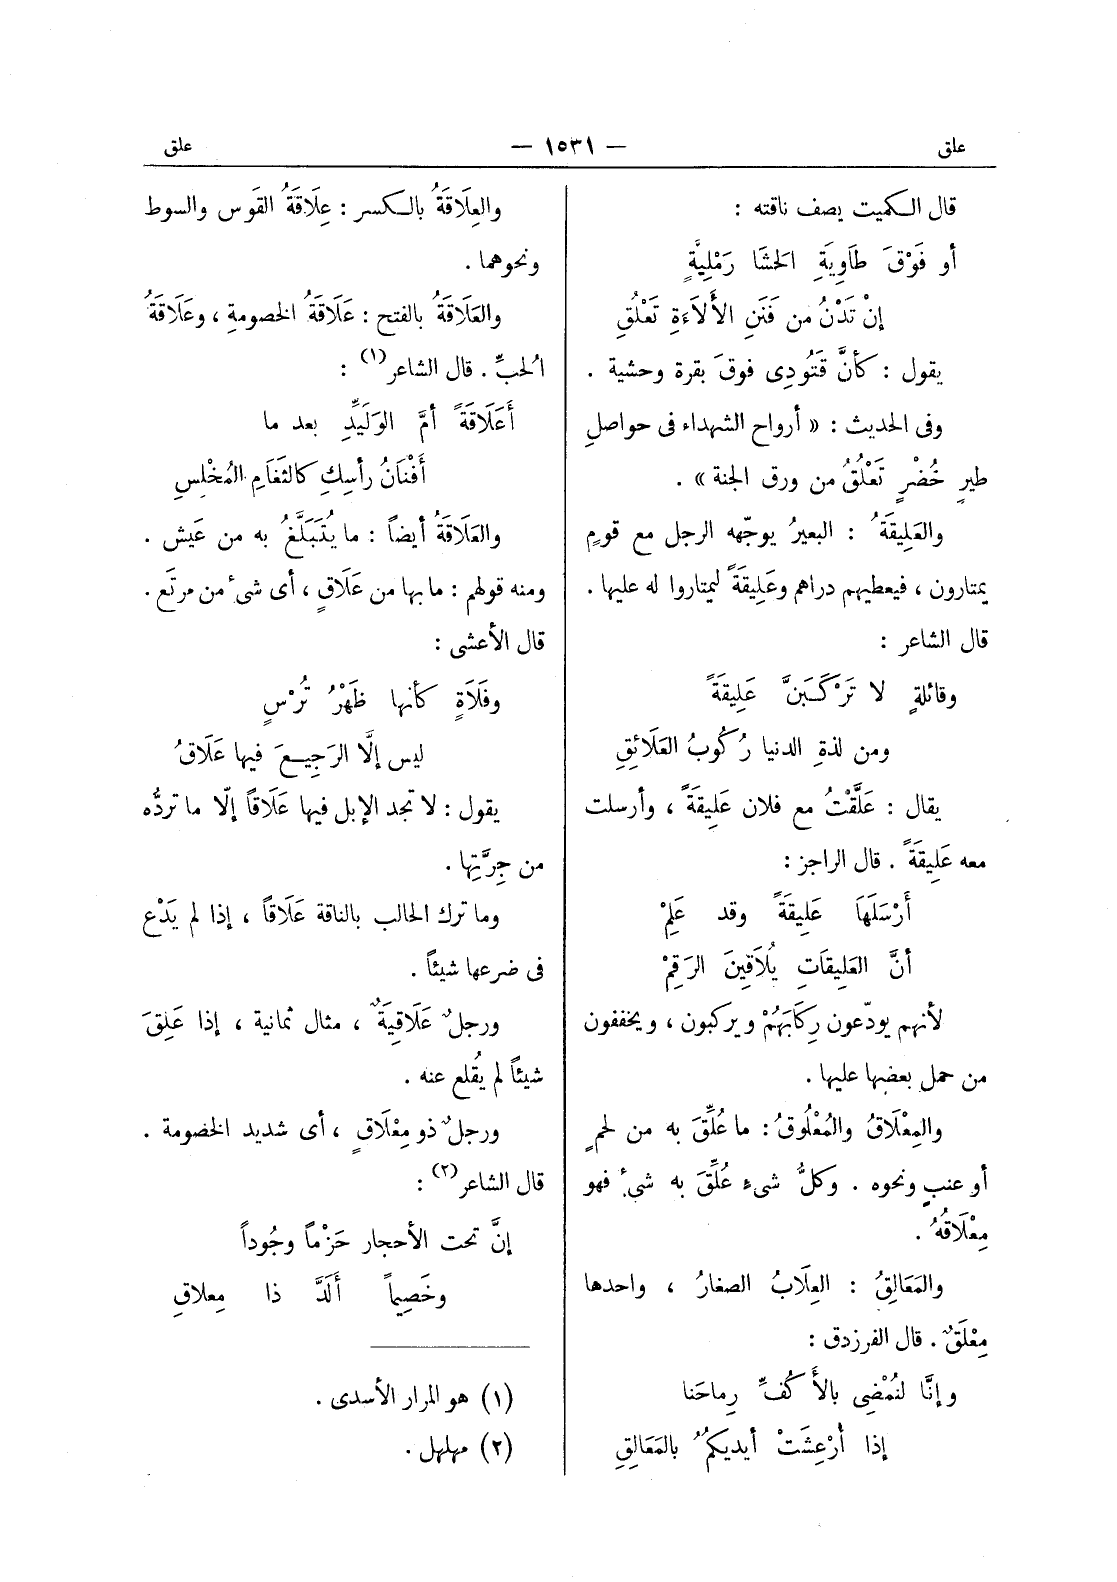 علق — ١٥٣١ — علق
قال الكميت يصف ناقته :
أو فَوْقَ طَاوِيَةِ الحَشَا رَمْلِيَّةٍ
إنْ تَدْنُ من فَنَنِ الأَلَاءَةِ تَعْلُقِ
يقول : كأنَّ قَتُودِى فوقَ بقرة وحشية .
وفى الحديث : « أرواح الشهداء فى حواصلِ
طيرٍ خُضْرٍ تَعْلُقُ من ورق الجنة » .
والعَلِيقَةُ : البعيرُ يوجّهه الرجل مع قومٍ
يمتارون ، فيعطيهم دراهم وعَلِيقَةً ليمتاروا له عليها .
قال الشاعر :
وقائلةٍ لا تَرْكَبَنَّ عَلِيقَةً
ومن لذةِ الدنيا رُكُوبُ العَلَائِقِ
يقال : عَلَّقْتُ مع فلان عَلِيقَةً ، وأرسلت
معه عَلِيقَةً . قال الراجز :
أَرْسَلَهَا عَلِيقَةً وقد عَلِمْ
أنَّ العَلِيقَاتِ يُلَاقِينَ الرَقِمْ
لأنهم يودّعون رِكَابَهُمْ ويركبون ، ويخففون
من حمل بعضها عليها .
والمِعْلَاقُ والمُعْلُوقُ : ما عُلِّقَ به من لحمٍ
أو عنبٍ ونحوه . وكلُّ شىء عُلِّقَ به شىءٌ فهو
مِعْلَاقُهُ .
والمَعَالِقُ : العِلَابُ الصغارُ ، واحدها
مِعْلَقٌ . قال الفرزدق :
وإنَّا لنُمْضِى بالأَكُفِّ رِماحَنا
إذا أُرْعِشَتْ أيديكمُ بالمَعَالِقِ
والعِلَاقَةُ بالكسر : عِلَاقَةُ القَوس والسوط
ونحوهما .
والعَلَاقَةُ بالفتح : عَلَاقَةُ الخصومةِ ، وعَلَاقَةُ
الحُبِّ . قال الشاعر (١) :
أَعَلَاقَةً أمَّ الوَلَيِّدِ بعد ما
أَفْنَانُ رأسِكِ كالثَغَامِ المُخْلِسِ
والعَلَاقَةُ أيضاً : ما يُتَبَلَّغُ به من عَيش .
ومنه قولهم : ما بها من عَلَاقٍ ، أى شىءٌ من مرتَع .
قال الأعشى :
وفَلَاةٍ كأنها ظَهْرُ تُرْسٍ
ليس إلَّا الرَجِيعَ فيها عَلَاقُ
يقول : لا تجد الإبل فيها عَلَاقاً إلّا ما تردُّه
من جِرَّتِها .
وما ترك الحالب بالناقة عَلَاقاً ، إذا لم يَدْع
فى ضرعها شيئاً .
ورجلٌ عَلَاقِيَةٌ ، مثال ثمانية ، إذا عَلِقَ
شيئاً لم يُقلع عنه .
ورجلٌ ذو مِعْلَاقٍ ، أى شديد الخصومة .
قال الشاعر (٢) :
إنَّ تحت الأحجار حَزْماً وجُوداً
وخَصِيماً أَلَدَّ ذا مِعلاقِ
(١) هو المرار الأسدى .
(٢) مهلهل .